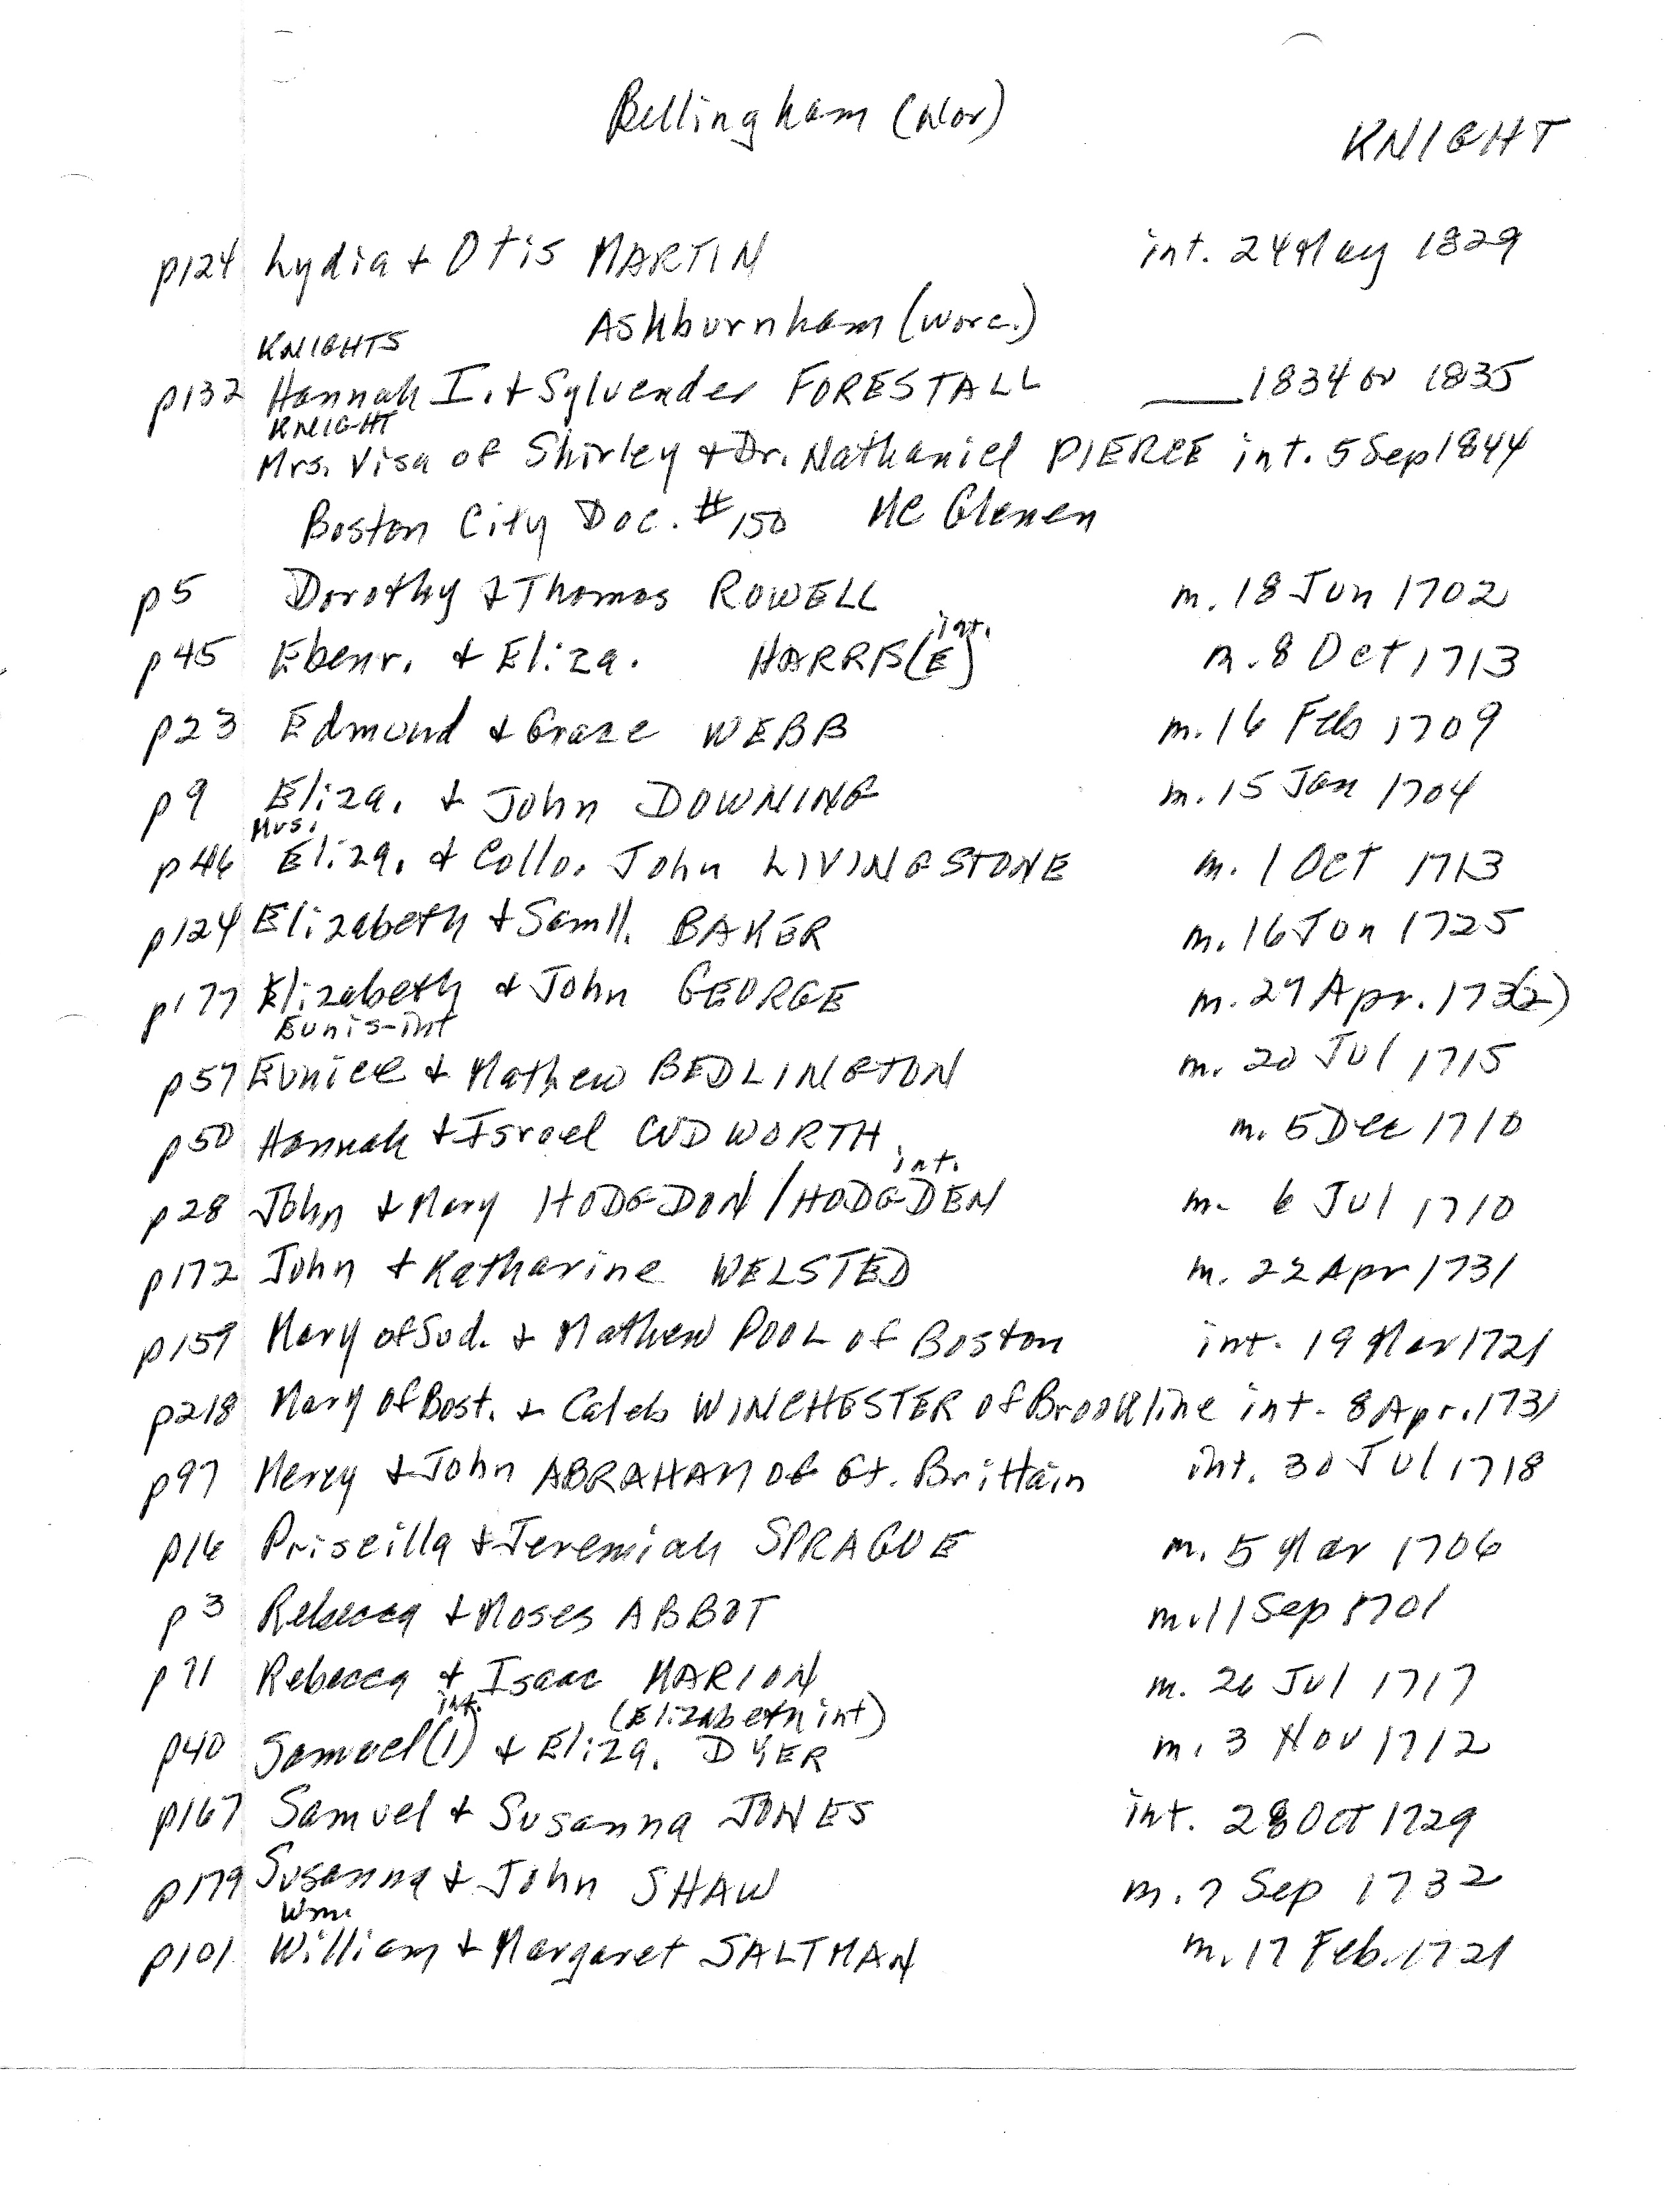 Bellingham (Nor)
KNIGHT
p124 Lydia + Otis MARTIN int. 24 May 1829
Ashburnham (Worc.)
KNIGHTS
p132 Hannah I. + Sylvender FORESTALL ___ 1834 or 1835
KNIGHT
Mrs. Visa of Shirley + Dr. Nathaniel PIERCE int. 5 Sep 1844
Boston City Doc. #150 Mc Glenen
p5 Dorothy & Thomas ROWELL m. 18 Jun 1702
int.
p45 Ebenr. + Eliza. HARRIS(E) m. 8 Oct 1713
p23 Edmund + Grace WEBB m. 16 Feb 1709
p9 Eliza. + John DOWNING m. 15 Jan 1704
Mrs.
p46 Eliza. + Collo. John LIVINGSTONE m. 1 Oct 1713
p124 Elizabeth + Samll. BAKER m. 16 Jun 1725
p177 Elizabeth + John GEORGE m. 27 Apr. 173(2)
Eunis-int
p57 Eunice + Mathew BEDLINGTON m. 20 Jul 1715
p50 Hannah + Israel CUDWORTH m. 5 Dec 1710
int.
p28 John + Mary HODGDON/HODGDEN m. 6 Jul 1710
p172 John + Katharine WELSTED m. 22 Apr 1731
p159 Mary of Sud. + Mathew POOL of Boston int. 19 Mar 1721
p218 Mary of Bost. + Caleb WINCHESTER of Brookline int. 8 Apr. 1731
p97 Mercy + John ABRAHAM of Gt. Brittain int. 30 Jul 1718
p16 Priscilla + Jeremiah SPRAGUE m. 5 Mar 1706
p3 Rebecca + Moses ABBOT m. 11 Sep 1701
p71 Rebecca + Isaac MARION m. 26 Jul 1717
int. (Elizabeth int)
p40 Samuel(l) + Eliza. DYER m. 3 Nov 1712
p167 Samuel + Susanna JONES int. 28 Oct 1729
p179 Susanna + John SHAW m. 7 Sep 1732
Wm.
p101 William + Margaret SALTMAN m. 17 Feb. 1721